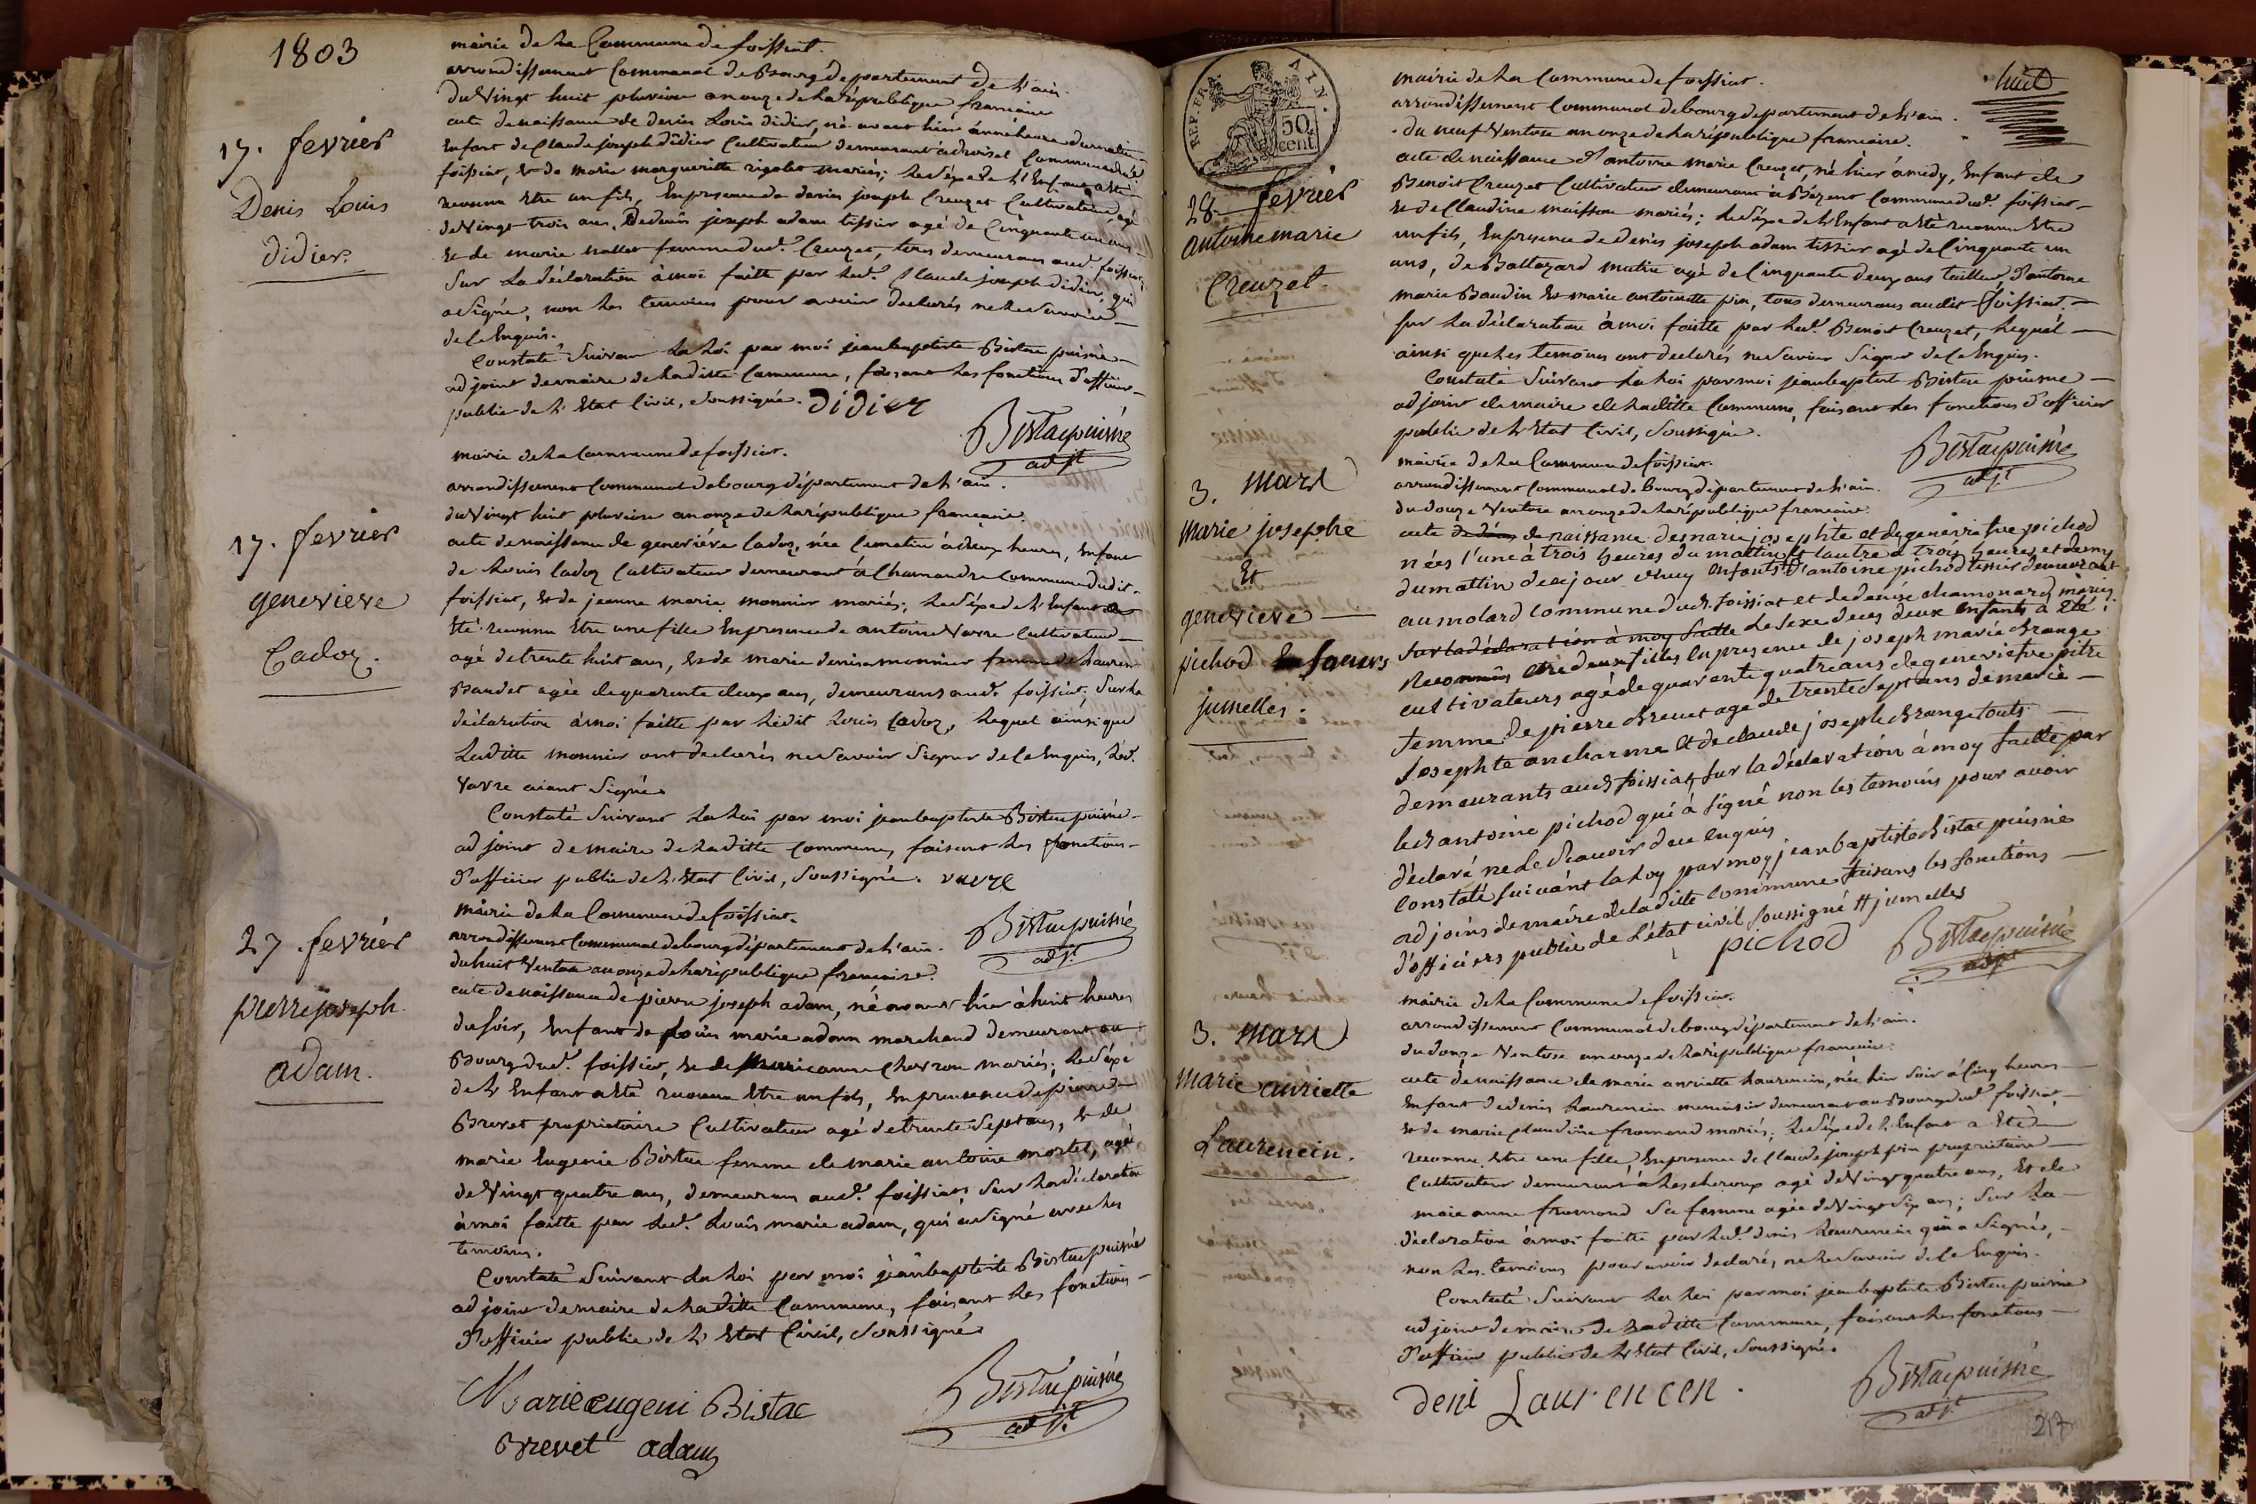 1803
17. fevrier
Denis Louis
didier
mairie de la Commune de foissiat.
arrondissement Communal de Bourg departement de l'ain.
du Vingt huit pluviose an onze de la république francaise
acte de naissance de denis Louis didier, né avant hier à neuf heures du matin
Enfant de Claude joseph didier Cultivateur demeurant à Commune dud.
foissiat, et de marie margueritte rigolet mariés; le sexe de l'Enfant a été
reconnu Etre un fils, En presence de denis joseph Creuzet Cultivateur agé
de Vingt trois ans, De denis joseph adam tissier agé de Cinquante un ans
et de marie nallet femme dud. Creuzet, tous demeurans aud. foissiat,
Sur La déclaration à moi faitte par led. Claude joseph didier, qui
a Signé, non les temoins pour avoir declarés ne le Savoir
de ce Enquis.
Constaté Suivant La Loi par moi jeanbaptiste Bistac puisné
adjoint de maire de laditte Commune, faisant les fonctions d'officier
public de l'Etat Civil, Soussigné. didier
Bistac puisné
adjt
17. fevrier
genevieve
Cadoz.
mairie de la Commune de foissiat.
arrondissement Communal de bourg département de l'ain.
du Vingt huit pluviose an onze de la république francaise.
acte de naissance de geneviéve Cadoz, née Ce matin à deux heures, Enfant
de Louis Cadoz Cultivateur demeurant à Chamandre Commune dudit
foissiat, Et de jeanne marie monnier mariés; Le Sexe de l'Enfant a
Eté reconnu Etre une fille En presence de antoine Vavre Cultivateur
agé de trente huit ans, Et de marie denise monnier femme de Laurent
Baudet agée de quarente deux ans, demeurans aud. foissiat; Sur La
déclaration à moi faitte par Ledit Louis Cadoz, Lequel ainsi que
Laditte monnier ont declarés ne Savoir Signer de Ce Enquis, Led.
Vavre aiant Signé.
Constaté Suivant La Loi par moi jeanbaptiste Bistac puisné
adjoint de maire de Laditte Commune, faisant les fonctions
d'officier public de l'Etat Civil, Soussigné. vavre
Bistac puisné
adjt
27. fevrier
pierre joseph
adam.
mairie de La Commune de foissiat.
arrondissement Communal de bourg département de l'ain.
du huit Ventose an onze de la république francaise.
acte de naissance de pierre joseph adam, né avant hier à huit heures
du soir, Enfant de Louis marie adam marchand demeurant au
Bourg dud. foissiat, et de Marie anne Chevron mariés; Le Sexe
de l'Enfant a été reconnu Etre un fils, En presence de pierre
Brevet proprietaire Cultivateur agé de trente Sept ans, et de
marie Eugenie Bistac femme de marie antoine mortel, agé
de Vingt quatre ans, demeurans aud. foissiat, Sur La déclaration
à moi faitte par Led. Louis marie adam, qui a Signé avec les
temoins.
Constaté Suivant La Loi par moi jeanbaptiste Bistac puisné
adjoint de maire de Laditte Commune, faisant les fonctions
d'officier public de l'Etat Civil, Soussigné
Marie eugeni Bistac
Brevet adam
Bistac puisné
adjt
REP. FRA.
50 cent
huit
28. fevrier
antoine marie
Creuzet.
mairie de la Commune de foissiat.
arrondissement Communal de bourg departement de l'ain.
du neuf Ventose an onze de la république francaise.
acte de naissance d'antoine marie Creuzet, né hier à midy, Enfant de
Benoit Creuzet Cultivateur demeurant à Bézent Commune dud. foissiat
Et de Claudine maisson mariés; Le Sexe de l'Enfant a été reconnu Etre
un fils, En presence de denis joseph adam tissier agé de Cinquante un
ans, de Baltazard mutin agé de Cinquante deux ans tailleur, d'antoine
marie Baudin Et marie antoinette pin, tous demeurans audit foissiat.
Sur La déclaration à moi faitte par Led. Benoit Creuzet, Lequel
ainsi que Les temoins ont declarés ne Savoir Signer de Ce Enquis.
Constaté Suivant La Loi par moi jeanbaptiste Bistac puisné
adjoint de maire de Laditte Commune, faisant les fonctions d'officier
public de l'Etat Civil, Soussigné.
Bistac puisné
adjt
3. Mars
Marie josephte
Et
genevieve
pichod soeurs
jumelles.
mairie de La Commune de foissiat.
arrondissement Communal de Bourg département de l'ain.
du douze Ventose an onze de la république francaise.
acte de naissance de marie josephte et de genevieftve pichod
nées l'une à trois heures du mattin et lautre à trois heures et demy
du mattin de ce jour duy Enfants # d'antoine pichod tissier demeurant
au molard commune dud. foissiat et de denise chamonard mariés
Sur la déclaration à moy faitte Le sexe de ces deux enfants a été
Reconnûs être deux filles En presence de joseph marie Brange
cultivateurs agé de quarante quatre ans de genevieftve pitre
femme de pierre Brevet agé de trente sept ans de marie
Josephte ancharme et de claude joseph Brange touts
demeurants aud. foissiat, Sur la déclaration à moy faitte par
led. antoine pichod qui à Signé non les temoins pour avoir
déclaré ne Le Scavoir de ce enquis.
constaté suivant la Loy par moy jeanbaptiste Bistac puisné
adjoins de maire de laditte commune faisans les fonctions
d'officiers public de L'état civil Soussigné # jumelles
pichod
Bistac puisné
adjt
3. Mars
Marie anriette
Laurencin.
mairie de La Commune de foissiat.
arrondissement Communal de bourg département de l'ain.
du douze Ventose an onze de la république francaise.
acte de naissance de marie anriette Laurencin, née hier Soir à Cinq heures
Enfant de denis Laurencin menuisier demeurant au Bourg dud. foissiat,
Et de marie Claudine fromond mariés; Le Sexe de l'Enfant a Eté
reconnu Etre une fille, En presence de Claude joseph pin proprietaire
Cultivateur demeurant à Lescheroux agé de Vingt quatre ans, Et de
marie anne fromond Sa femme agée de Vingt Six ans; Sur La
déclaration à moi faitte par Led. denis Laurencin qui a Signé,
non Les temoins pour avoir declarés ne Le Savoir de Ce Enquis.
Constaté Suivant La Loi par moi jeanbaptiste Bistac puisné
adjoint de maire de Laditte Commune, faisant les fonctions
d'officier public de l'Etat Civil, Soussigné.
deni Laurencen.
Bistac puisné
adjt
217